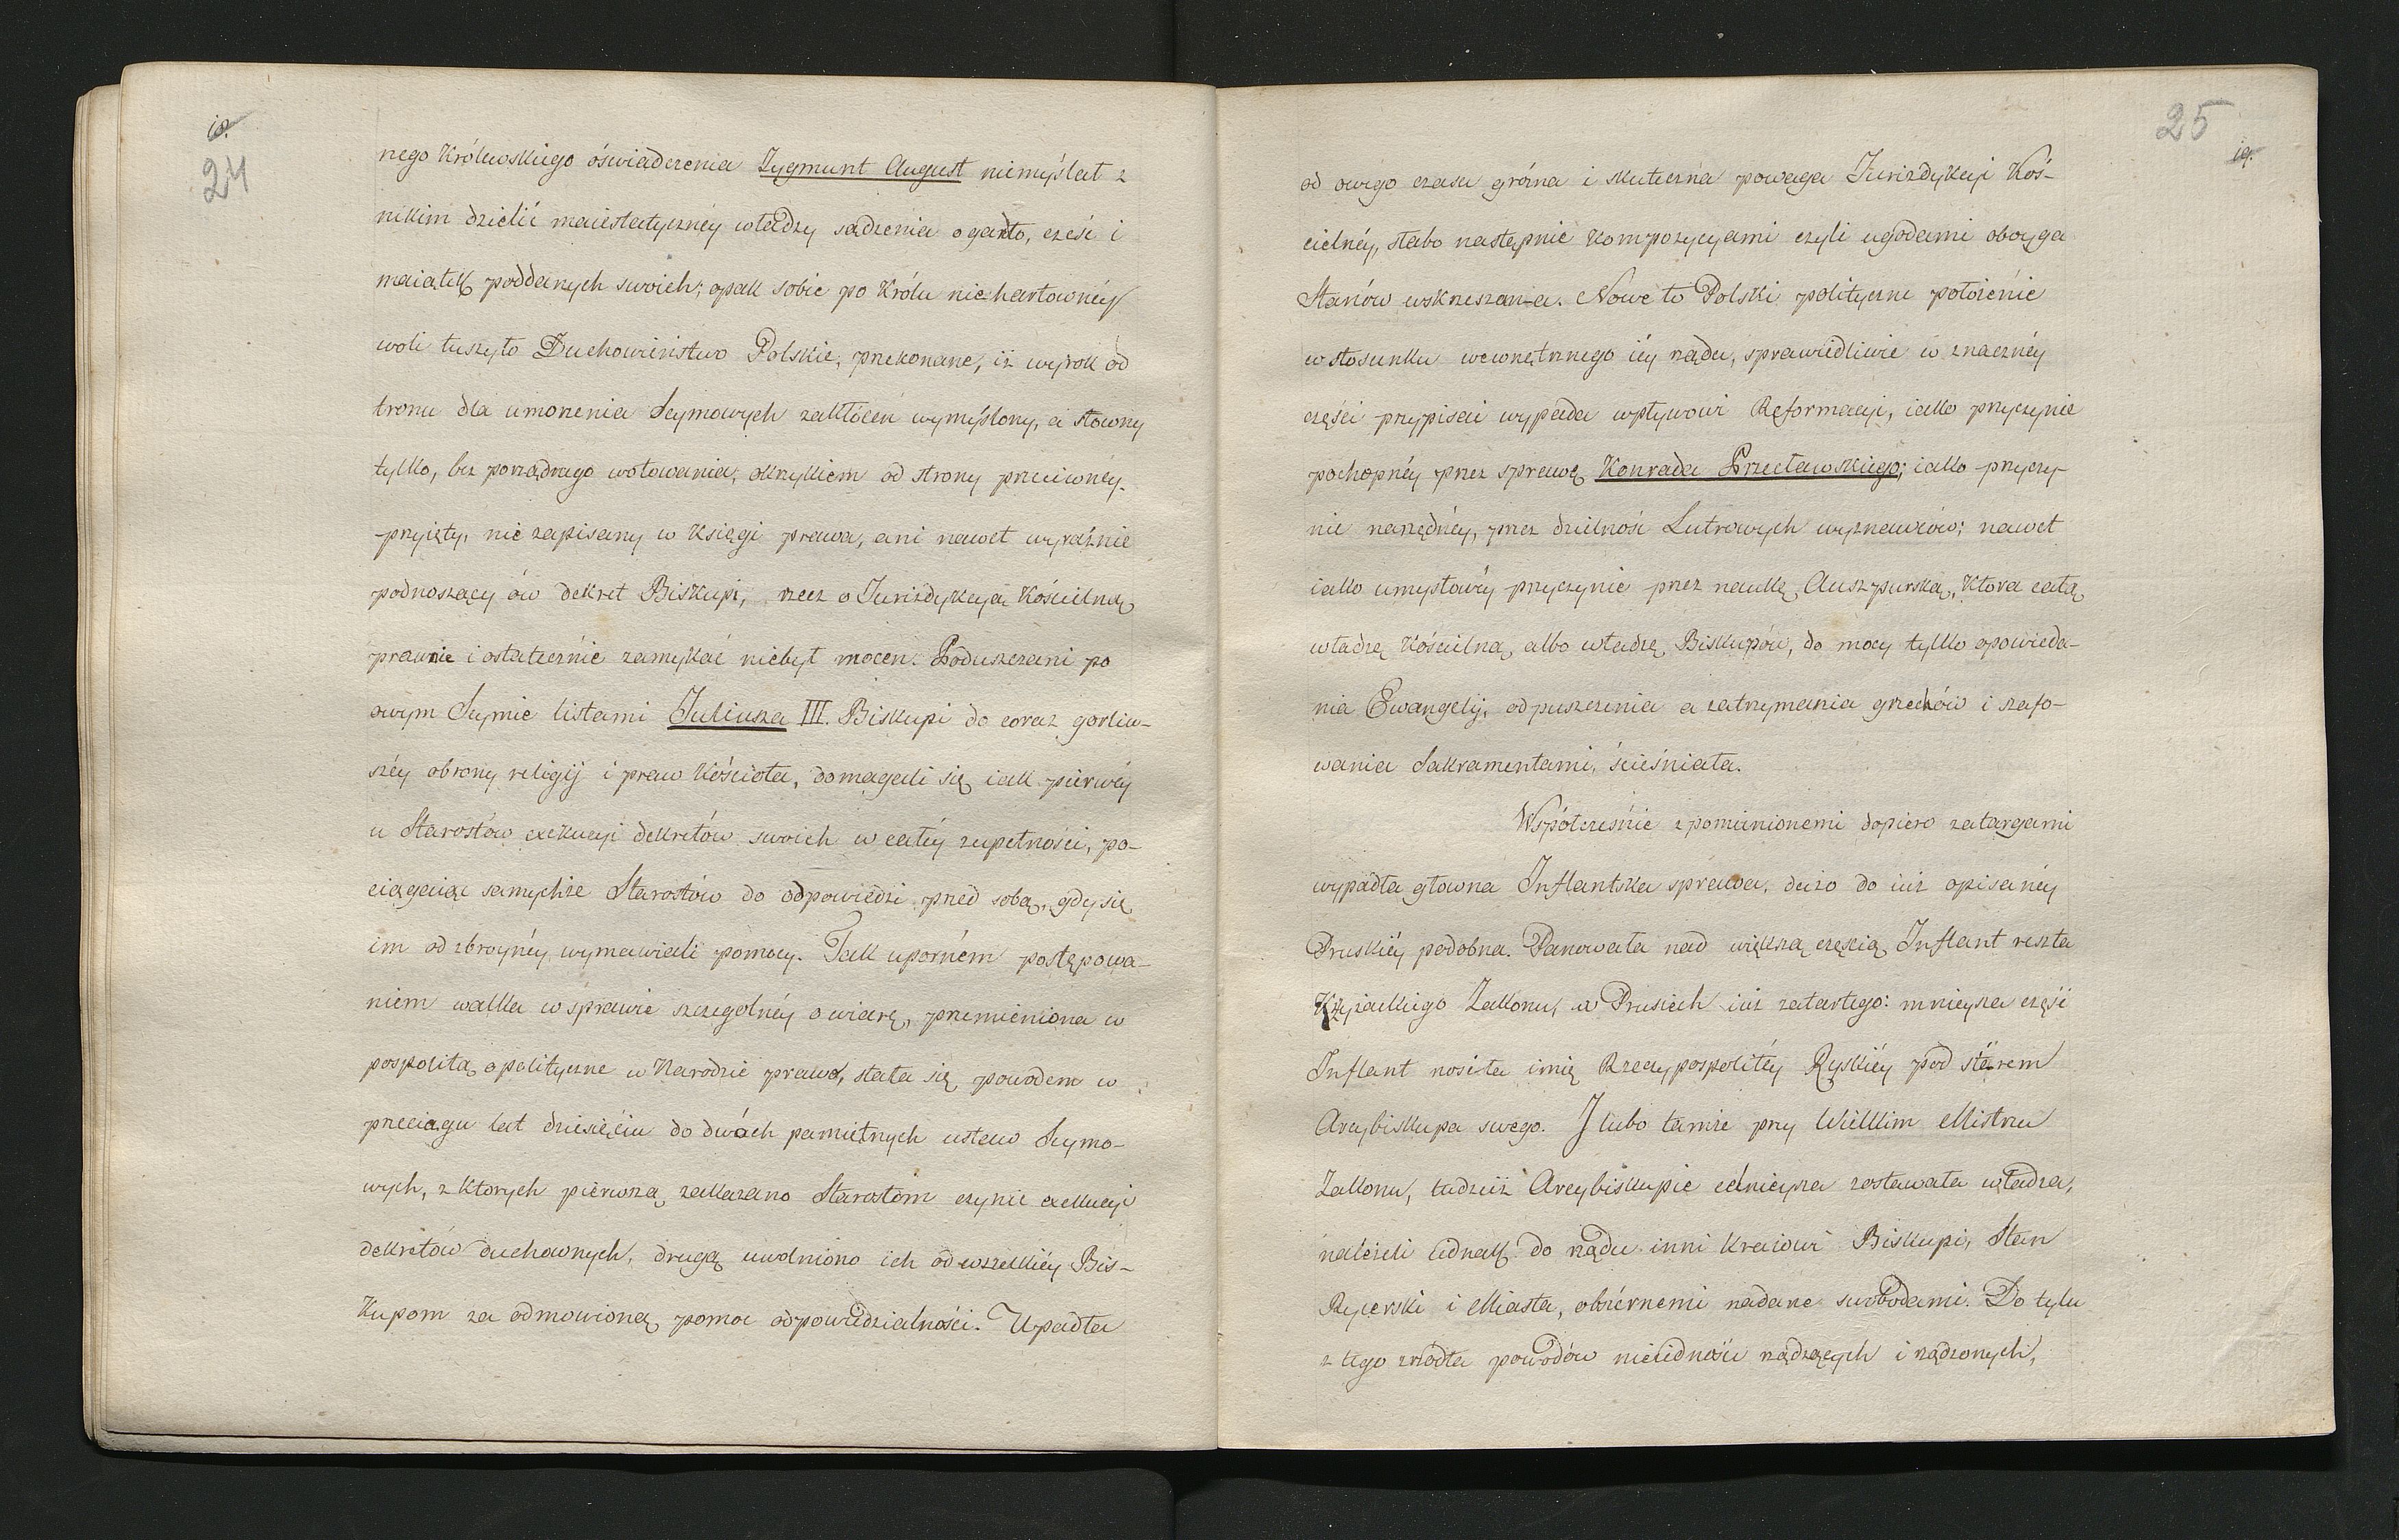 18.
24
nego Królewskiego óświadczenia Zygmunt August niemyślał z
nikim dzielić maiestatycznéy władzy sądzenia o gardło, cześć i
maiątek poddanych swoich; opak sobie po Królu niehartownéy
woli tuszyło Duchowieństwo Polskie, przekonane, iż wyrok od
tronu dla umorzenia Seymowych zakłóceń wymyślony, a słowny
tylko, bez porządnego wotowania, okrzykiem od strony przeciwnéy
przyięty, nie zapisany w Księgi prawa, ani nawet wyraźnie
podnoszący ów dekret Biskupi, rzecz o Jurizdykcyą Kościelną
prawnie i ostatecznie zamykać niebył mocen. Poduszczani po
owym Seymie listami Juliusza III. Biskupi do coraz gorliw-
széy obrony religij i praw Kościoła, domagali się iak pierwéy
u Starostów exekucyi dekretów swoich w całéy zupełności, po-
ciągaiąc samychże Starostów do odpowiedzi przed sobą, gdy się
im od zbroynéy wymawiali pomocy. Tak uporném postępowa-
niem walka w sprawie szczególnéy o wiarę, przemieniona w
pospolitą o polityczne w Narodzie prawo, stała się powodem w
przeciągu lat dziesięciu do dwóch pamiętnych ustaw Seymo-
wych, z których pierwszą zakazano Starostom czynić exekucyi
dekretów duchownych, drugą uwolniono ich od wszelkiéy Bis-
kupom za odmowioną pomoc odpowiedzialności. Upadła
25
19.
od owego czasu groźna i skuteczna powaga Jurizdykcyi Koś-
cielnéy, słabo następnie kompozycyami czyli ugodami oboyga
Stanów wskrzeszana. Nowe to Polski polityczne położenie
w stosunku wewnętrznego iéy rządu, sprawiedliwie w znacznéy
części przypisać wypada wpływowi Reformacyi, iako przyczynie
pochopnéy przez sprawę Konrada Przecławskiego; iako przyczy-
nie narzędnéy, przez dzielność Lutrowych wyznawców; nawet
iako umysłowéy przyczynie przez naukę Auszpurską, która całą
władzę Kościelną albo władzę Biskupów, do mocy tylko opowieda-
nia Ewangelij, odpuszczenia a zatrzymania grzechów i szafo-
wania Sakramentami, ścieśniała.
Współcześnie z pomienionemi dopiero zatargami
wypadła głowna Inflantska sprawa, dużo do iuż opisanéy
Pruskiéy podobna. Panowała nad większą częścią Inflant reszta
Krzyżackiego Zakonu, w Prusiech iuż zatartego: mnieysza część
Inflant nosiła imię Rzeczypospolitéy Ryskiéy pod stérem
Arcybiskupa swego. I lubo tamże przy Wielkim Mistrzu
Zakonu, tudzież Arcybiskupie celnieysza zostawała władza,
należeli iednak do rządu inni kraiowi Biskupi, Stan
Rycerski i Miasta, obszérnemi nadane swobodami. Do tylu
z tego źródła powodów nieiedności rządzących i rządzonych,